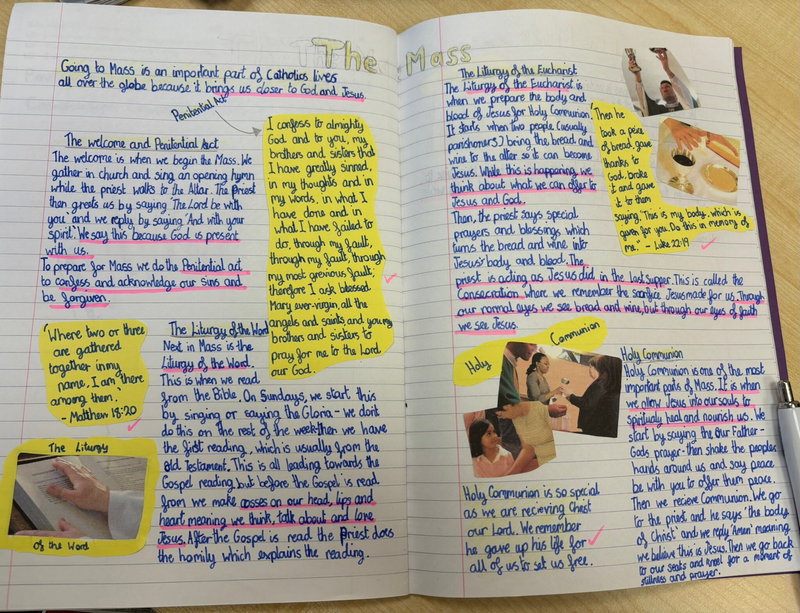 The Mass
Going to Mass is an important part of Catholics lives
all over the globe because it brings us closer to God and Jesus.
Penitential Act
The welcome and Penitential Act
The welcome is when we begin the Mass. We
gather in church and sing an opening hymn
while the priest walks to the Altar. The Priest
then greets us by saying 'The Lord be with
you' and we reply by saying 'And with your
spirit'. We say this because God is present
with us.
To prepare for Mass we do the Penitential act
to confess and acknowledge our sins and
be forgiven.
I confess to almighty
God and to you, my
brothers and sisters that
I have greatly sinned,
in my thoughts and in
my words, in what I
have done and in
what I have failed to
do, through my fault,
through my fault, through
my most grevious fault;
therefore I ask blessed
Mary ever-virgin, all the
angels and saints, and you my
brothers and sisters to
pray for me, to the Lord
our God.
"Where two or three
are gathered
together in my
name, I am there
among them."
- Matthew 18:20
The Liturgy
of the Word
The Liturgy of the Word
Next in Mass is the
Liturgy of the Word.
This is when we read
from the Bible. On Sundays, we start this
by singing or saying the Gloria - we don't
do this on the rest of the week - then we have
the first reading, which is usually from the
Old Testament. This is all leading towards the
Gospel reading but before the Gospel is read
from we make cosses on our head, lips and
heart meaning we think, talk about and love
Jesus. After the Gospel is read the Priest does
the homily which explains the reading.
The Liturgy of the Eucharist
The Liturgy of the Eucharist is
when we prepare the body and
blood of Jesus for Holy Communion.
It starts when two people (usually
parishoners) bring the bread and
wine to the alter so it can become
Jesus. While this is happening, we
think about what we can offer to
Jesus and God.
Then, the priest says special
prayers and blessings which
turns the bread and wine into
Jesus' body and blood. The
priest is acting as Jesus did in the Last Supper. This is called the
Consecration where we remember the sacrifice Jesus made for us. Through
our normal eyes we see bread and wine, but through our eyes of faith
we see Jesus.
"Then he
took a piece
of bread, gave
thanks to
God, broke
it and gave
it to them
saying, 'This is my body, which is
given for you. Do this in memory of
me.'" - Luke 22:19
Holy Communion
Holy Communion is so special
as we are recieving Christ
our Lord. We remember
he gave up his life for
all of us to set us free.
Holy Communion
Holy Communion is one of the most
important parts of Mass. It is when
we allow Jesus into our souls to
spiritually heal and nourish us. We
start by saying the Our Father -
Gods prayer - then shake the peoples
hands around us and say peace
be with you to offer them peace.
Then we recieve Communion. We go
to the priest and he says 'the body
of Christ' and we reply 'Amen' meaning
we believe this is Jesus. Then we go back
to our seats and kneel for a moment of
stillness and prayer.